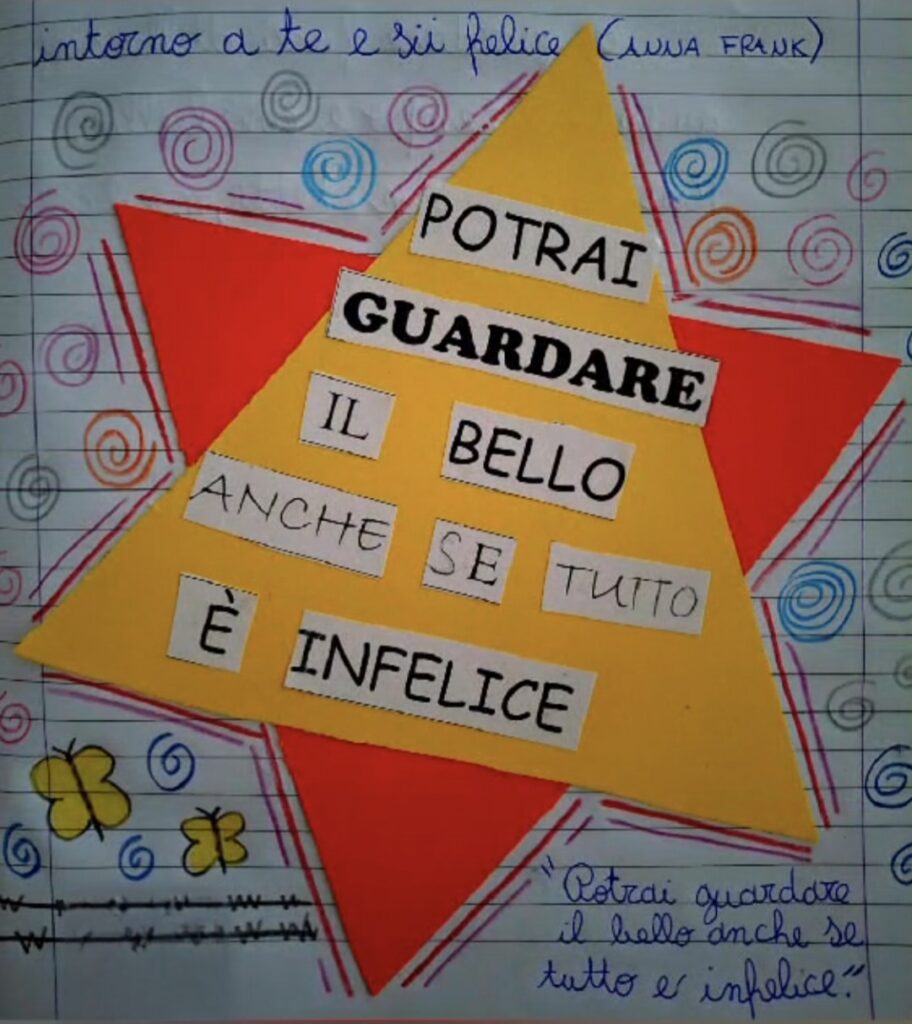 intorno a te e sii felice (ANNA FRANK)
POTRAI
GUARDARE
IL BELLO
ANCHE SE TUTTO
È INFELICE
"Potrai guardare
il bello anche se
tutto e' infelice."